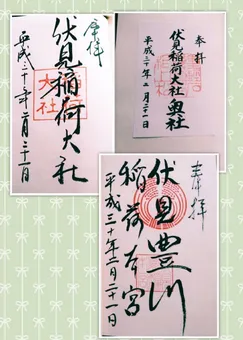 奉拝
伏見稲荷大社
平成三十年二月二十一日
奉拝
伏見稲荷大社奥社
平成三十年二月二十一日
奉拝
伏見豊川
稲荷本宮
平成三十年二月二十一日